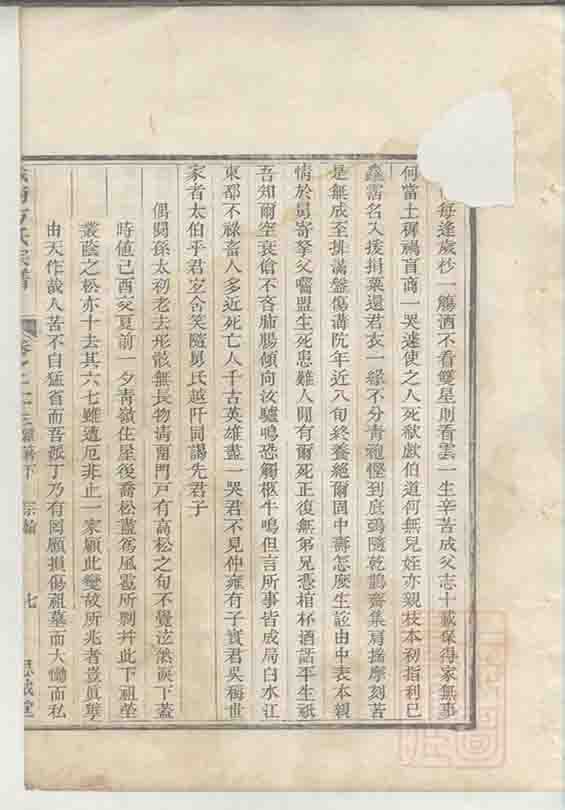 每逢歲杪一觴酒不看雙星則看雲一生辛苦成父志十載保得家無事
何當土穉禍盲商一哭遽使之人死欷歔伯道何無兒姪亦親枝本初指利己
鑫雷名入援捐粟還君衣一緣不分青袍慳到底鴞隨乾鵲齋集肩摇摩刻苦
是無成至排滿盤傷溝阬年近八旬終養絕爾固中壽怎麽生詮由中表本親
情於舅寄孥父嚙盟生死患難人閒有爾死正復無弟兄憑棺杯酒話平生祇
吾知爾空衰傖不吝肺腸傾向汝驢鳴恐觸柩牛鳴但言所事皆成局白水江
東郡不祿畜人多近死亡人千古英雄盡一哭君不見仲雍有子實君吳梅世
家者太伯乎君宜含笑隨舅氏越阡同謁先君子
偶閱孫太初老去形骸無長物清閒門戸有高松之句不覺泫然淚下蓋
時值己酉交夏前一夕青嶺住屋後喬松盡爲風雹所剝并此下祖塋
叢蔭之松亦十去其六七雖遭厄非止一家顧此變故所兆者豈眞孼
由天作哉人苦不自猛省而吾孤丁乃有因願損傷祖墓而大慟而私
方氏宗譜
卷之
雜著下
七
思誠堂